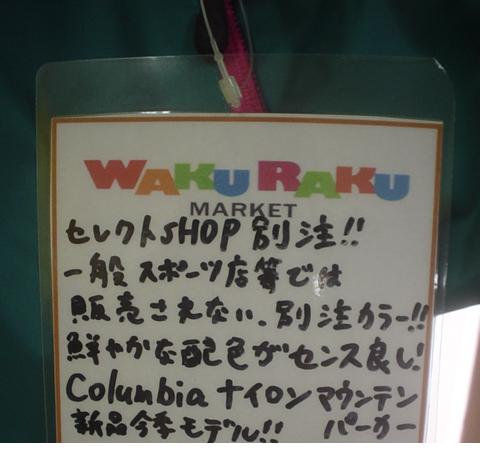 WAKU RAKU
MARKET
セレクトSHOP 別注!!
一般 スポーツ店等では
販売されない、別注カラー!!
鮮やかな配色がセンス良し!
Columbia ナイロン マウンテン
新品今季モデル!! パーカー